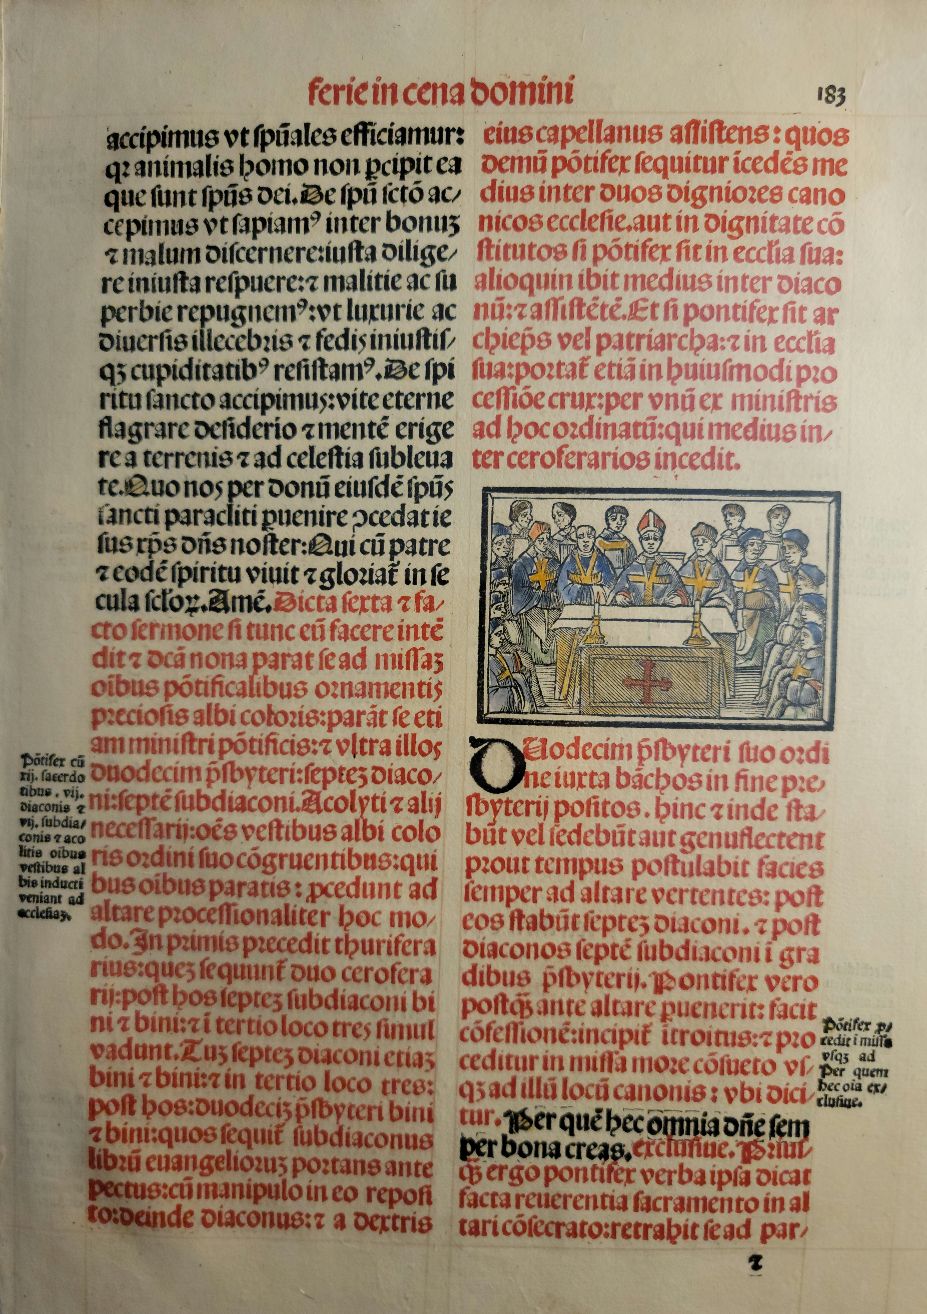 ferie in cena domini
183
accipimus vt spũales efficiamur:
qꝛ animalis homo non ꝑcipit ea
que sunt spũs dei. De spũ sctõ ac/
cepimus vt sapiamꝰ inter bonuʒ
⁊ malum discernere: iusta dilige/
re iniusta respuere: ⁊ malitie ac su
perbie repugnemꝰ: vt luxurie ac
diuersis illecebris ⁊ fedis iniustis/
qʒ cupiditatibꝰ resistamꝰ. De spi
ritu sancto accipimus: vite eterne
flagrare desiderio ⁊ mentẽ erige
re a terrenis ⁊ ad celestia subleua
te. Quo nos per donũ eiusdẽ spũs
sancti paracliti ꝑuenire ↄcedat ie
sus xp̃s dñs noster: Qui cũ patre
⁊ eodẽ spiritu viuit ⁊ gloriat̃ in se
cula sc̃loꝝ. Amẽ. Dicta sexta ⁊ fa/
cto sermone si tunc eũ facere intẽ
dit ⁊ dcã nona parat se ad missaʒ
oĩbus põtificalibus ornamentis
preciosis albi coloris: parãt se eti
am ministri põtificis: ⁊ vltra illos
duodecim p̃sbyteri: septeʒ diaco/
ni: septẽ subdiaconi. Acolyti ⁊ alij
necessarij: oẽs vestibus albi colo
ris ordini suo cõgruentibus: qui
bus oĩbus paratis: ꝓcedunt ad
altare processionaliter hoc mo/
do. In primis precedit thurifera
rius: queʒ sequunt̃ duo cerofera
rij: post hos septeʒ subdiaconi bi
ni ⁊ bini: ⁊ ĩ tertio loco tres simul
vadunt. Tuʒ septeʒ diaconi etiaʒ
bini ⁊ bini: ⁊ in tertio loco tres:
post hos: duodeciʒ p̃sbyteri bini
⁊ bini: quos sequit̃ subdiaconus
librũ euangelioruʒ portans ante
pectus: cũ manipulo in eo reposi
to: deinde diaconus: ⁊ a dextris
Põtifex cũ
xij. sacerdo
tibus. vij.
diaconis ⁊
vij. subdia/
conis ⁊ aco
litis oĩbus
vestibus al
bis inducti
veniant ad
ecclesiaʒ.
eius capellanus assistens: quos
demũ põtifex sequitur ĩcedẽs me
dius inter duos digniores cano
nicos ecclesie. aut in dignitate cõ
stitutos si põtifex sit in eccl̃ia sua:
alioquin ibit medius inter diaco
nũ: ⁊ assistẽtẽ. Et si pontifex sit ar
chiep̃s vel patriarcha: ⁊ in eccl̃ia
sua: portat̃ etiã in huiusmodi pro
cessiõe crux: per vnũ ex ministris
ad hoc ordinatũ: qui medius in/
ter ceroferarios incedit.
DUodecim p̃sbyteri suo ordi
ne iuxta bãchos in fine pre/
sbyterij positos. hinc ⁊ inde sta/
bũt vel sedebũt aut genuflectent
prout tempus postulabit facies
semper ad altare vertentes: post
eos stabũt septeʒ diaconi. ⁊ post
diaconos septẽ subdiaconi ĩ gra
dibus p̃sbyterij. Pontifex vero
postqʒ̃ ante altare ꝑuenerit: facit
cõfessionẽ: incipit̃ ĩtroitus: ⁊ pro
ceditur in missa more cõsueto vs/
qʒ ad illũ locũ canonis: vbi dici/
tur. Per quẽ hec omnia dñe sem
per bona creas. exclusiue. Prius/
qʒ̃ ergo pontifex verba ipsa dicat
facta reuerentia sacramento in al
tari cõsecrato: retrahit se ad par/
Põtifex ꝓ/
cedit ĩ missa
vsqʒ ad
Per quem
hec oĩa ex/
clusiue.
⁊